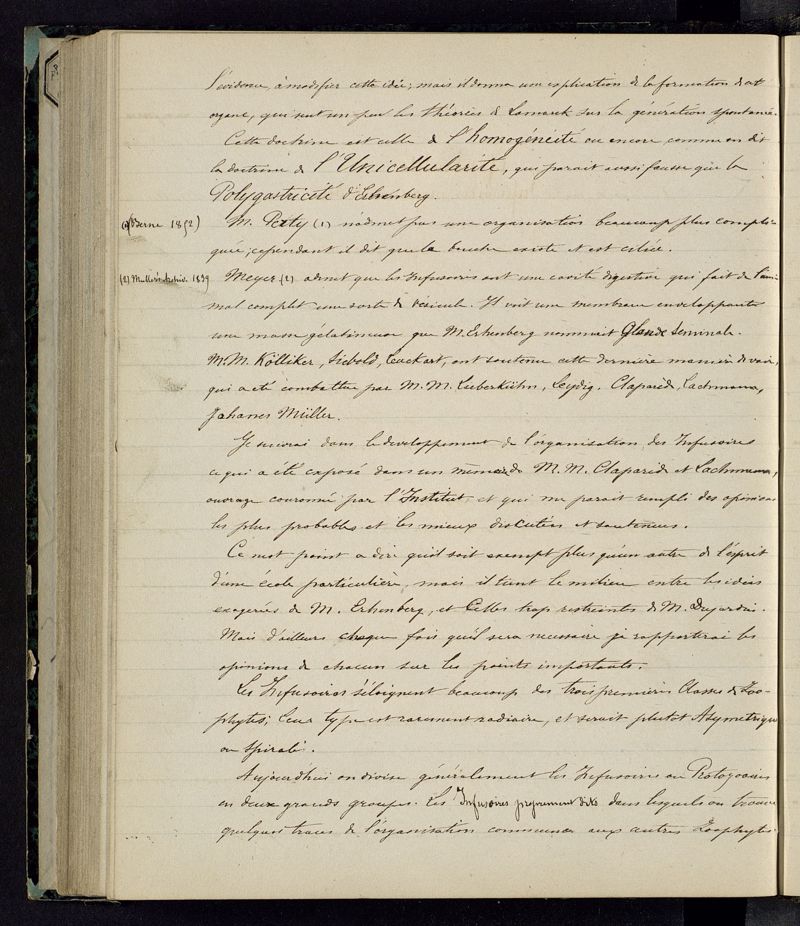 l'évidence, à modifier cette idée; mais il donna une explication de la formation de cet
organe, qui sent un peu les théories de Lamark sur la génération spontanée.
Cette doctrine est celle de l'homogénéité ou encore comme on dit
la doctrine de l'Unicellularité, qui parait aussi fausse que la
Polygastricité d'Erhenberg.
(1) Berne 1852) M. Perty (1) n'admet pas une organisation beaucoup plus compli-
quée; cependant il dit que la bouche existe et est ciliée.
(2) Muller's Archiv. 1839 Meyer (2) admet que les Infusoires ont une cavité digestive qui fait de l'ani-
mal complet une sorte de vésicule. Il voit une membrane enveloppante
une masse gélatineuse que M. Erhenberg nommait Glande Seminale.
M.M. Kölliker, Siebold, Leuckart, ont soutenu cette dernière manière de voir,
qui a été combattue par M.M. Lieberkühn, Leydig, Claparède, Lachmann,
Johanes Müller.
Je suivrai dans le developpement de l'organisation des Infusoires
ce qui a été exposé dans un mémoire de M.M. Claparède et Lachmann,
ouvrage couronné par l'Institut, et qui me parait rempli des opinions
les plus probables et les mieux discutées et soutenues.
Ce n'est point a dire qu'il soit exempt plus qu'un autre de l'esprit
d'une école particulière, mais il tient le milieu entre les idées
exagerées de M. Erhenberg, et Celles trop restreintes de M. Dujardin.
Mais d'ailleurs chaque fois qu'il sera necessaire je rapporterai les
opinions de chacun sur les points importants.
Les Infusoires s'éloignent beaucoup des trois premières Classes de Zoo-
phytes; leur type est rarement radiaire, et serait plutôt Asymetrique
ou spiralé.
Aujourd'hui on divise généralement les Infusoires ou Protozoaires
en deux grands groupes. Les Infusoires proprement dits dans lesquels on trouve
quelques traces de l'organisation commune aux autres Zoophytes